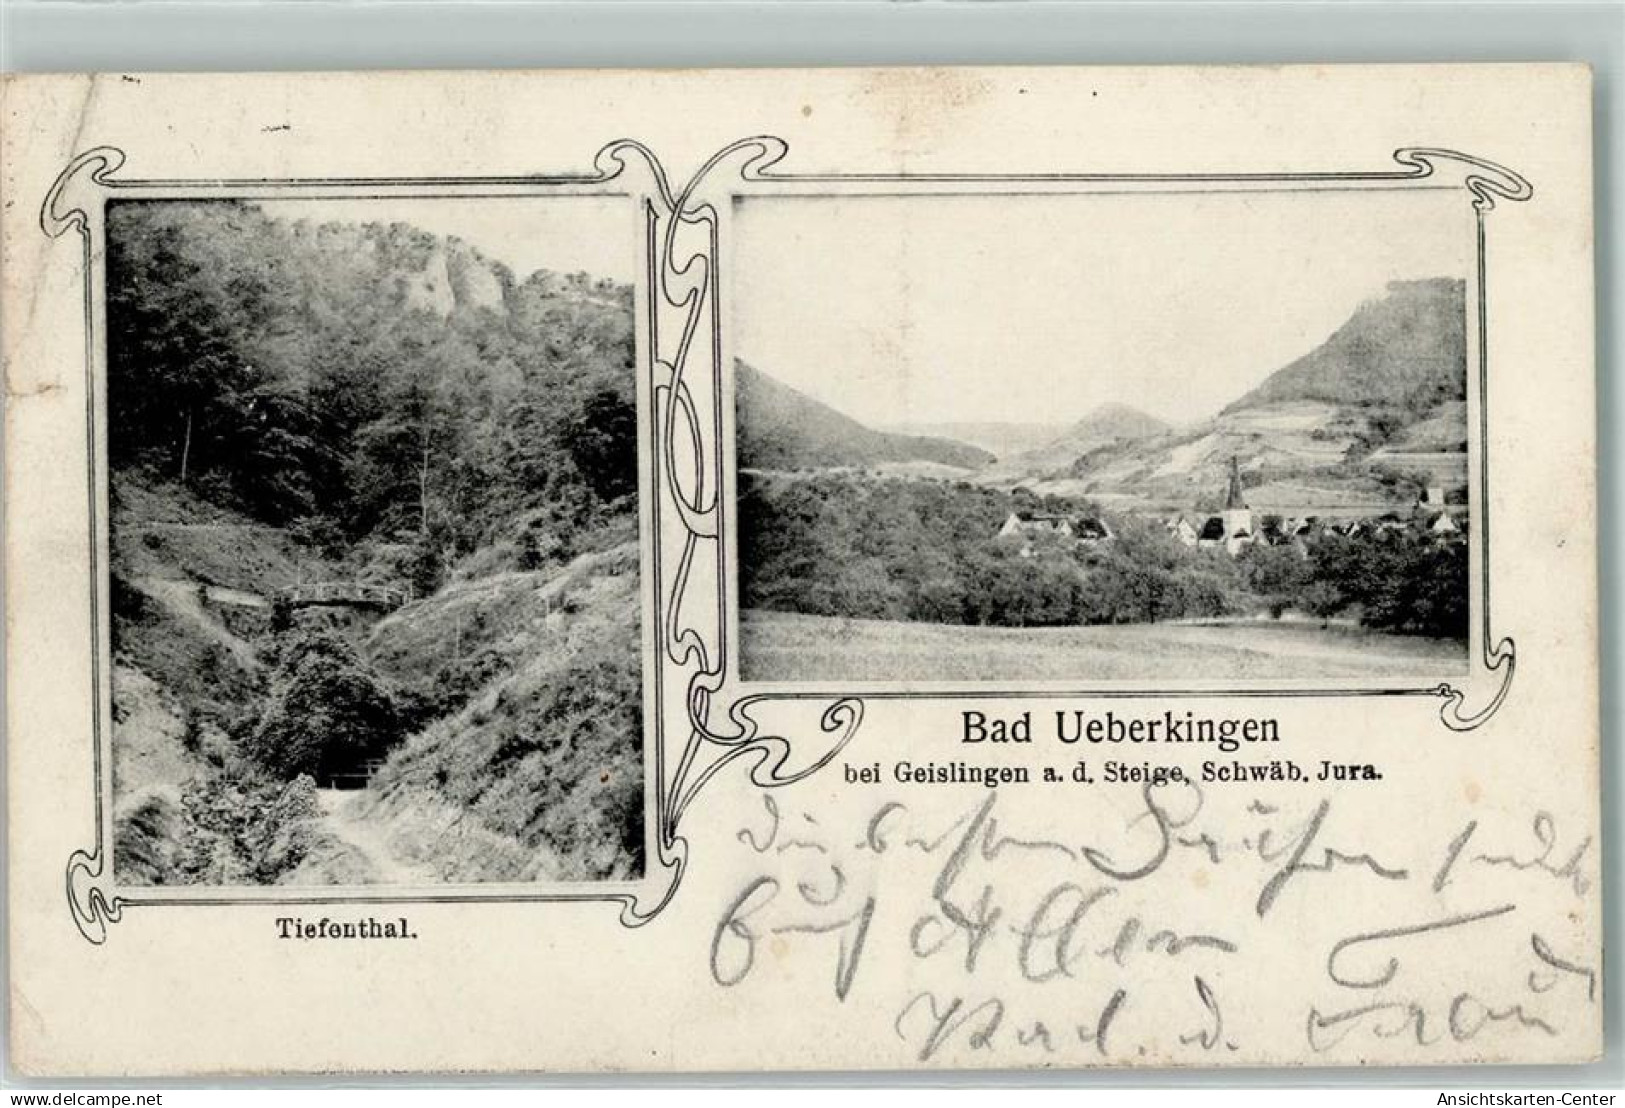 Tiefenthal.
Bad Ueberkingen
bei Geislingen a. d. Steige, Schwäb. Jura.
Die besten Grüße sendet
Euch Allen
Karl. u. Frau
delcampe.net
Ansichtskarten-Center